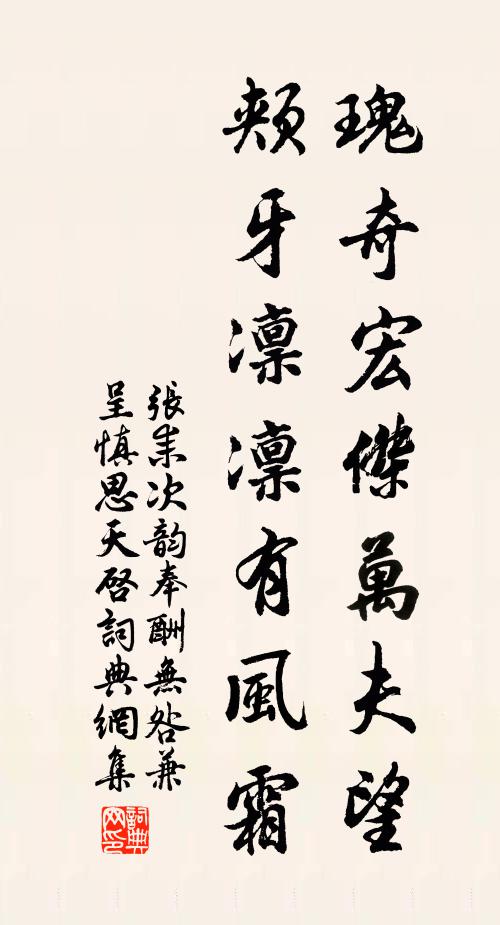 瑰奇宏傑萬夫望
頰牙凛凛有風霜
張耒次韵奉酬無咎兼
呈慎思天啓詞典網集
詞典
网印